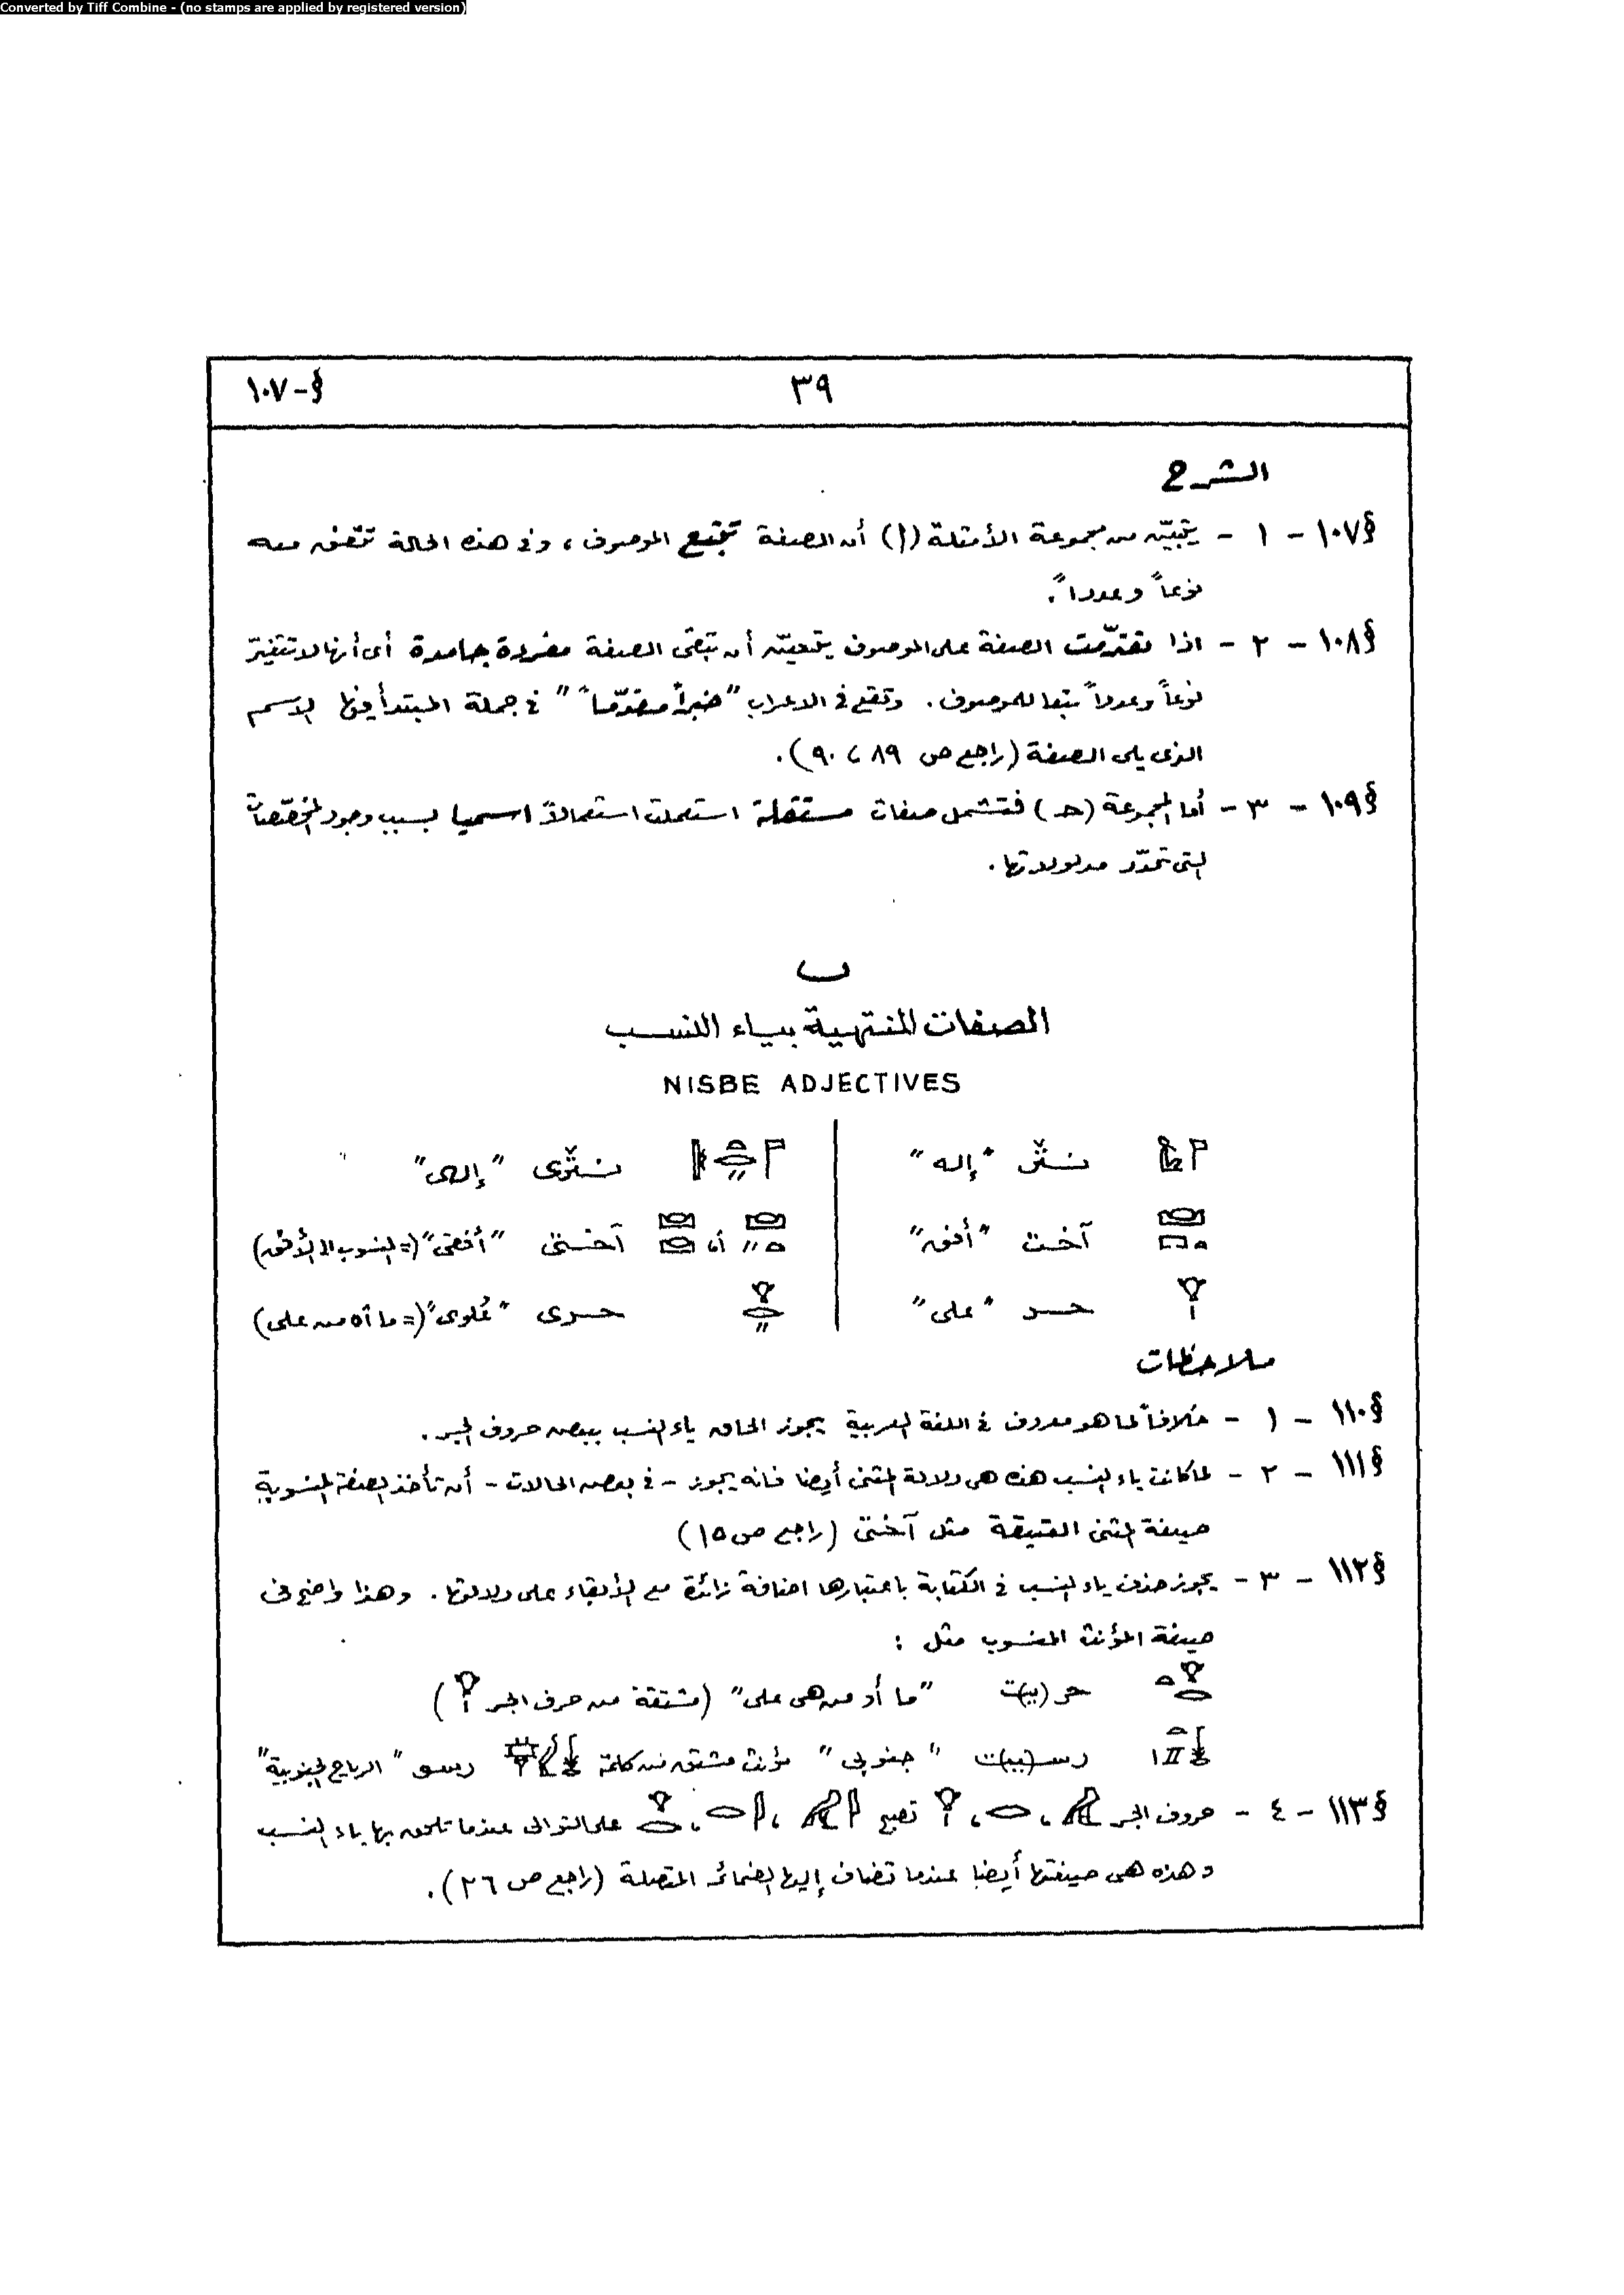 Converted by Tiff Combine - (no stamps are applied by registered version)
§-١٠٧
٣٩
الشرح
§١٠٧ - ١ - يتبيّن من مجموعة الأمثلة (ا) أن الصفة تتبع الموصوف، وفى هذه الحالة تتفق معه
نوعاً وعدداً.
§١٠٨ - ٢ - اذا تقدّمت الصفة على الموصوف يتعيّن أن تبقى الصفة مفردة جامدة أى أنها لا تتغيّر
نوعاً وعدداً تبعا للموصوف. وتقع فى الاعراب "خبراً مقدّماً" فى جملة المبتدأ فيها الاسم
الذى يلى الصفة (راجع ص ٨٩، ٩٠).
§١٠٩ - ٣ - أما المجموعة (حـ) فتشمل صفات مستقلة استعملت استعمالاً اسميا بسبب وجود المخصّصات
التى تحدّد مدلولاتها.
ب
الصفات المنتهية بياء النسب
NISBE ADJECTIVES
نثر "إله" نثرى "إلهى"
آخت "أفق" أما آختى "أفقى" (= المنسوب الى الأفق)
حر "على" حرى "عُلوى" (= ما أو من على)
ملاحظات
§١١٠ - ١ - خلافاً لما هو معروف فى اللغة العربية يجوز الحاق ياء النسب ببعض حروف الجر.
§١١١ - ٢ - لما كانت ياء النسب هذه هى دلالة المثنى أيضا فانه يجوز - فى بعض الحالات - أن تأخذ الصفة المنسوبة
صيغة المثنى العتيقة مثل آختى (راجع ص ١٥)
§١١٢ - ٣ - يجوز حذف ياء النسب فى الكتابة باعتبارها اضافة زائدة مع الأبقاء على دلالتها. وهذا واضح فى
صيغة المؤنث المنسوب مثل :
حر(يـ)ت "ما أو من هى على" (مشتقة من حرف الجر 𓁷𓏤)
رسـ(يـ)ت "جنوبى" مؤنث مشتق من كلمة رسو "الرياح الجنوبية"
§١١٣ - ٤ - حروف الجر 𓅓، 𓂋، 𓁷𓏤 تصبح 𓇋𓅓، 𓇋𓂋، 𓁷𓂋 على التوالى عندما تلحق بها ياء النسب
وهذه هى صيغتها أيضا عندما تضاف إليها الضمائر المتصلة (راجع ص ٢٦).